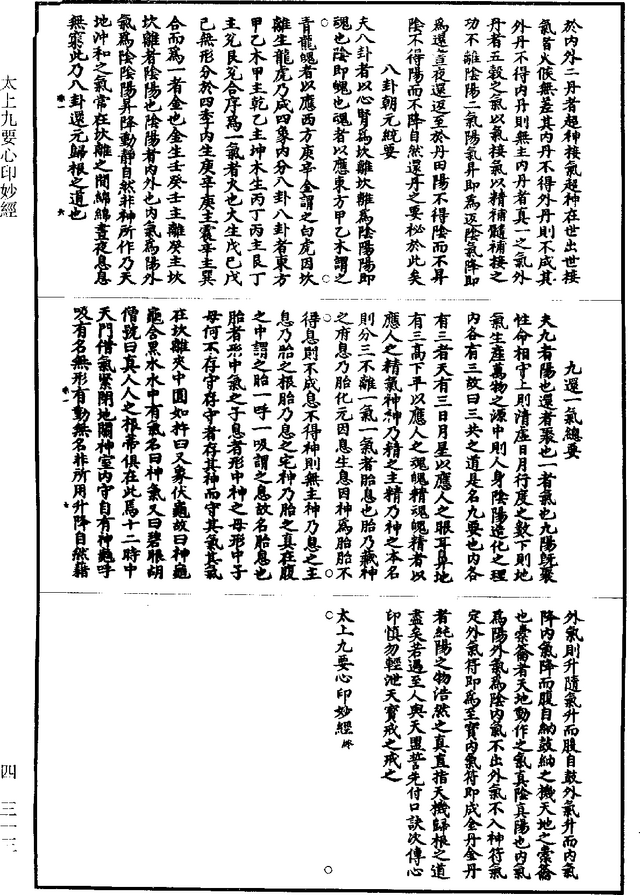 於內外二丹者超神接氣超神在世出世接
氣皆火候無差其內丹不得外丹則不成其
外丹不得內丹則無主內丹者真一之氣外
丹者五穀之氣以氣接氣以精補髓補接之
功不離陰陽二氣陽氣昇即為返陰氣降即
為還晝夜還返至於丹田陽不得陰而不昇
陰不得陽而不降自然還丹之要秘於此矣
八卦朝元統要
夫八卦者以心腎為坎離坎離為陰陽陽即
魂也陰即魄也魂者以應東方甲乙木謂之
青龍魄者以應西方庚辛金謂之白虎因坎
離生龍虎乃成四象內分八卦八卦者東方
甲乙木甲主乾乙主坤木生丙丁丙主艮丁
主兌艮兌合序為一氣者火也火生戊己戊
己無形分於四季內生庚辛庚主震辛主巽
合而為一者金也金生壬癸壬主離癸主坎
坎離者陰陽也陰陽者內外也內氣為陽外
氣為陰陰陽昇降動靜自然非神所作乃天
地沖和之氣常在坎離之間綿綿晝夜息息
無窮此乃八卦還元歸根之道也
九還一氣總要
夫九者陽也還者聚也一者氣也九陽旣聚
性命相守上則清虛日月行度之數下則地
氣生產萬物之源中則人身陰陽造化之理
內各有三故曰三共之道是名九要也內各
有三者天有三日月星以應人之眼耳鼻地
有三高下平以應人之魂魄精魂魄精者以
應人之精氣神神乃精之主精乃神之本名
則分三不離一氣一氣者胎息也胎乃藏神
之府息乃胎化元因息生息因神為胎胎不
得息則不成息不得神則無主神乃息之主
息乃胎之根胎乃息之宅神乃胎之真在腹
之中謂之胎一呼一吸謂之息故名胎息也
胎者形中氣之子息者形中神之母形中子
母何不存守存守者存其神而守其氣其氣
在坎離夾中圓如杵曰又象伏龜故曰神龜
龜含黑水水中有氣名曰神氣又曰碧眼胡
僧號曰真人人之根蒂俱在此為十二時中
天門借氣緊閉地關神室內守自有神龜呼
吸有名無形有動無名非所用升降自然藉
外氣則升隨氣升而腹自鼓外氣升而內氣
降內氣降而腹自納鼓納之機天地之橐籥
也橐籥者天地動作之氣真陰真陽也內氣
為陽外氣為陰內氣不出外氣不入神符氣
定外氣符即為至寶內氣符即成金丹金丹
者純陽之物浩然之真直指天機歸根之道
盡矣若遇至人與天盟誓先付口訣次傳心
印慎勿輕泄天寶戒之戒之
太上九要心印妙經 終
太上九要心印妙經
四 三一三